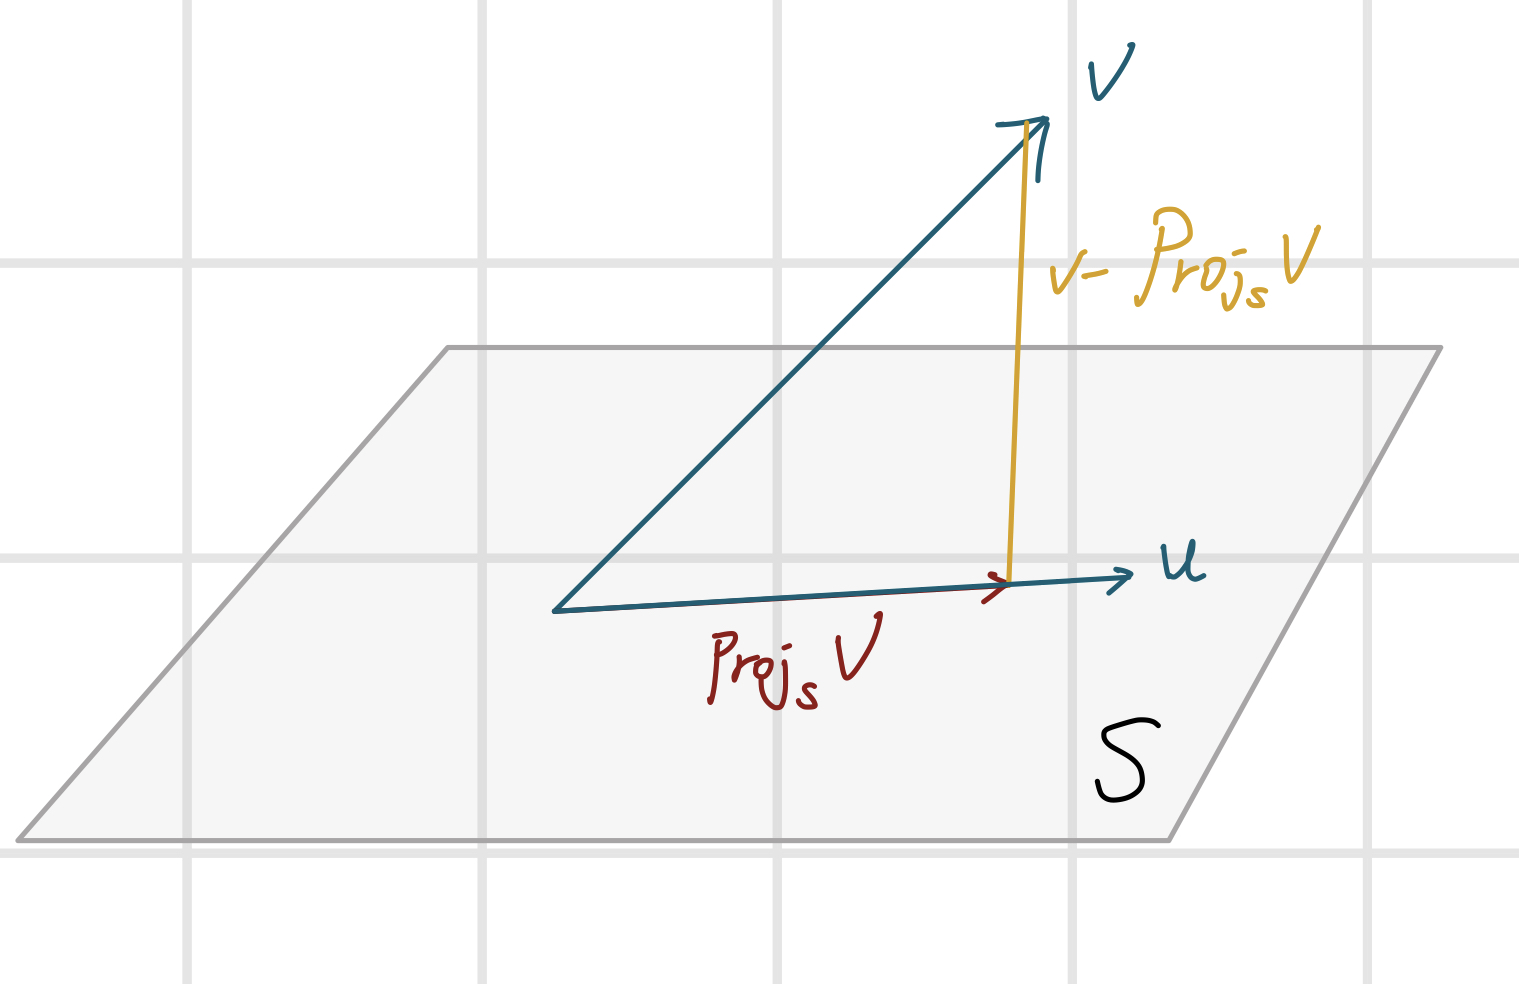 V
v - Proj_s V
u
Proj_s V
S